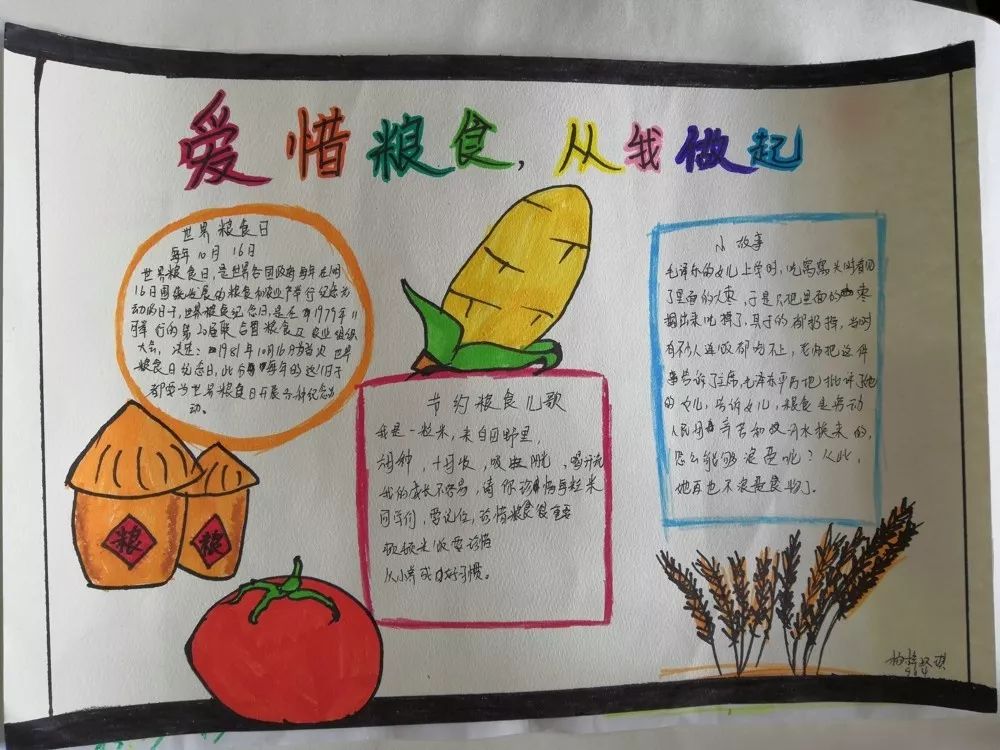 爱惜粮食,从我做起
世界粮食日
每年10月16日
世界粮食日,是世界各国政府每年在10月
16日围绕发展的粮食和农业产举行纪念为
动的日子,世界粮食纪念日,是在1979年11
举行的第20届联合国粮食及农业组织
大会,决定:1981年10月16日为首次世界
粮食日纪念日,此每年的这个日子
都要为世界粮食日开展各种纪念活
动。
节约粮食儿歌
我是一粒米,来自田野里,
月种,十月收,吸阳光,喝
我的成长不容易,请你珍惜每粒米
同学们,要记住,珍惜粮食食重要
颗颗米饭要珍惜
从小养成好习惯。
小故事
毛泽东的女儿上学时,吃窝窝头时看见
了里面的大枣,于是只把里面的枣
掏出来吃掉了,其于的都扔掉,当时
有不少人连饭都吃不上,老师把这件
事告诉了主席,毛泽东严厉地批评了她
的女儿,告诉女儿,粮食是劳动
人民用辛苦和汗水换来的,
怎么能够浪费呢?从此,
她再也不浪费食物了。
粮
粮